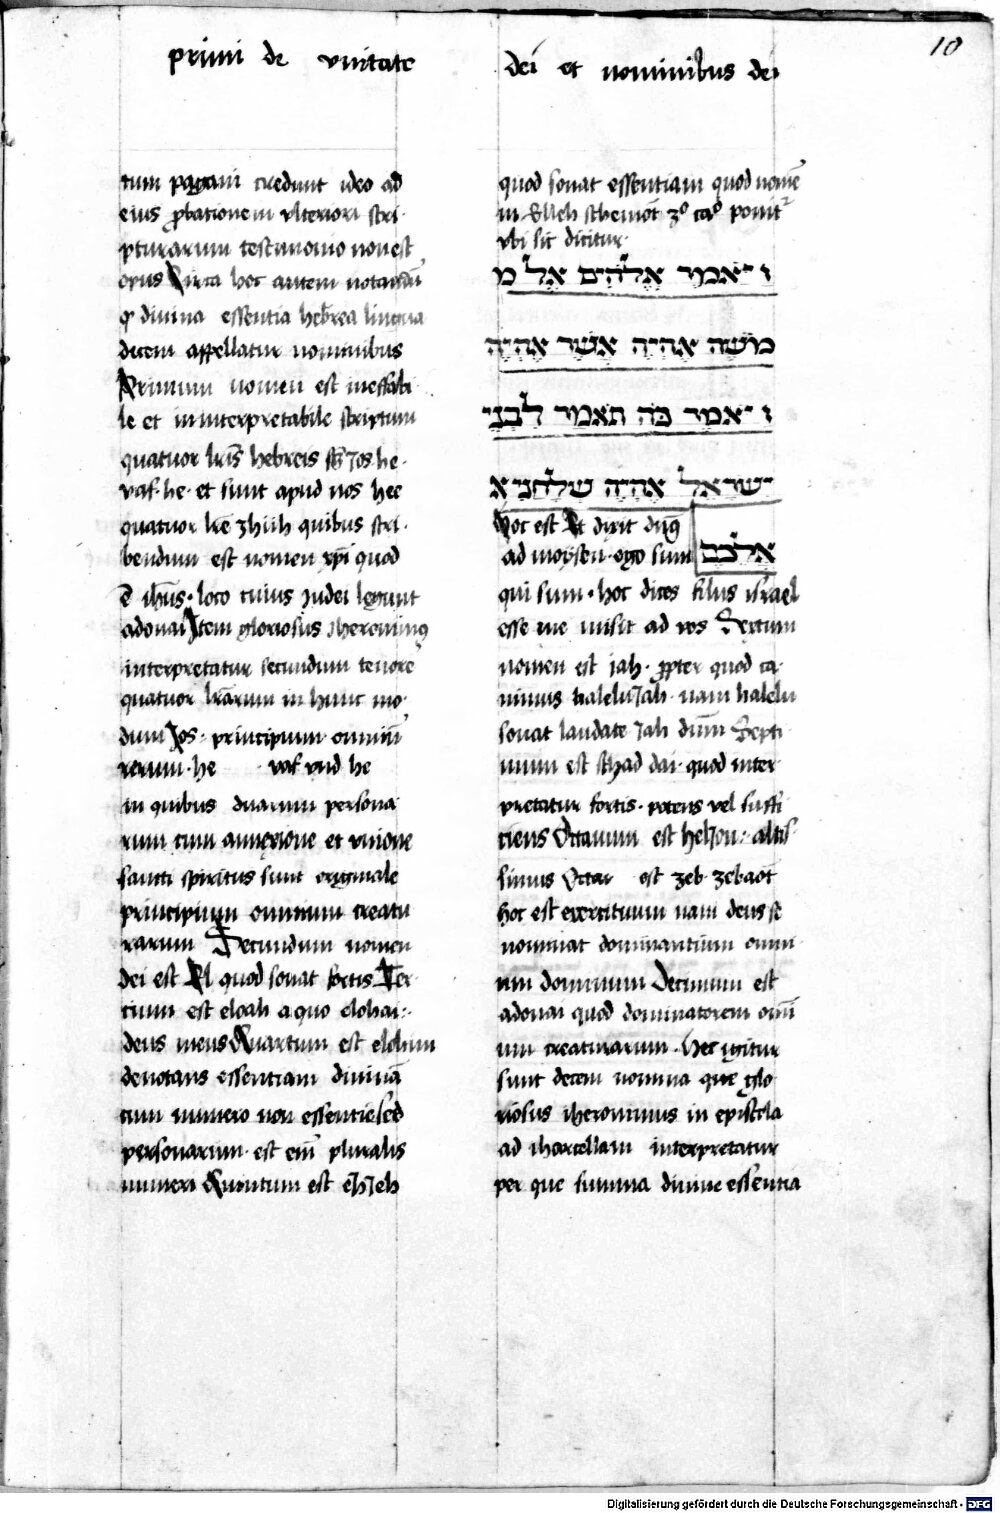 10
primi de vnitate dei et nominibus dei
tum pagani credunt ideo ad
eius ꝓbationem vlteriori scri-
pturarum testimonio non est
opus Circa hoc autem notandū
ꝙ diuina essentia hebrea lingua
decem appellatur nominibus
Primum nomen est ineffabi-
le et ininterpretabile scriptum
quatuor lrīs hebreis Jos he-
vaf-he- et sunt apud nos hee
quatuor lrē Jhuh quibus scri-
bendum est nomen xp̄i quod
ē ihūs. loco cuius Judei legunt
adonai Item gloriosus iheronimꝰ
interpretatur secundum tenorē
quatuor lrārum in hunc mo-
dum Jos: principium omniū
rerum. he vaf vnd he
in quibus duarum persona
rum cum annexione et vnione
sancti spiritus sunt originale
principium omnium creatu
rarum Secundum nomen
dei est El quod sonat fortis Ter-
cium est eloah a quo elohai:
deus meus Quartum est elohim
denotans essentiam diuinā
cum numero non essentie sed
personarum. est eni̅ pluralis
numeri Quintum est ehJeh
quod sonat essentiam quod nomē
in Elleh schemot 3º caº ponit᷑
vbi sic dicitur.
ויאמר אלהים אל מ
מושה אהיה אשר אהיה
ויאמר כה תאמר לבני
ישראל אהיה שלחני א
אלכם
hoc est Et dixit dn̄s
ad moÿsen. ego sum
qui sum. hoc dices filiis israel
esse me misit ad vos Sextum
nomen est jah. ꝓpter quod ca-
nimus haleluJah. nam halelu
sonat laudate Jah dūm Septi
mum est schad dai. quod inter
pretatur fortis. potens vel suffi
ciens Octauum est helJon: altis-
simus est zeb. zebaot
hoc est exercituum nam deus se
nominat dominantium omni
um dominum Decimum est
adonai quod dominatorem omī
um creaturarum. Hec igitur
sunt decem nomina que glo
riosus iheronimus in epistola
ad marcellam interpretatur
per que summa diuine essentia
Digitalisierung gefördert durch die Deutsche Forschungsgemeinschaft - DFG